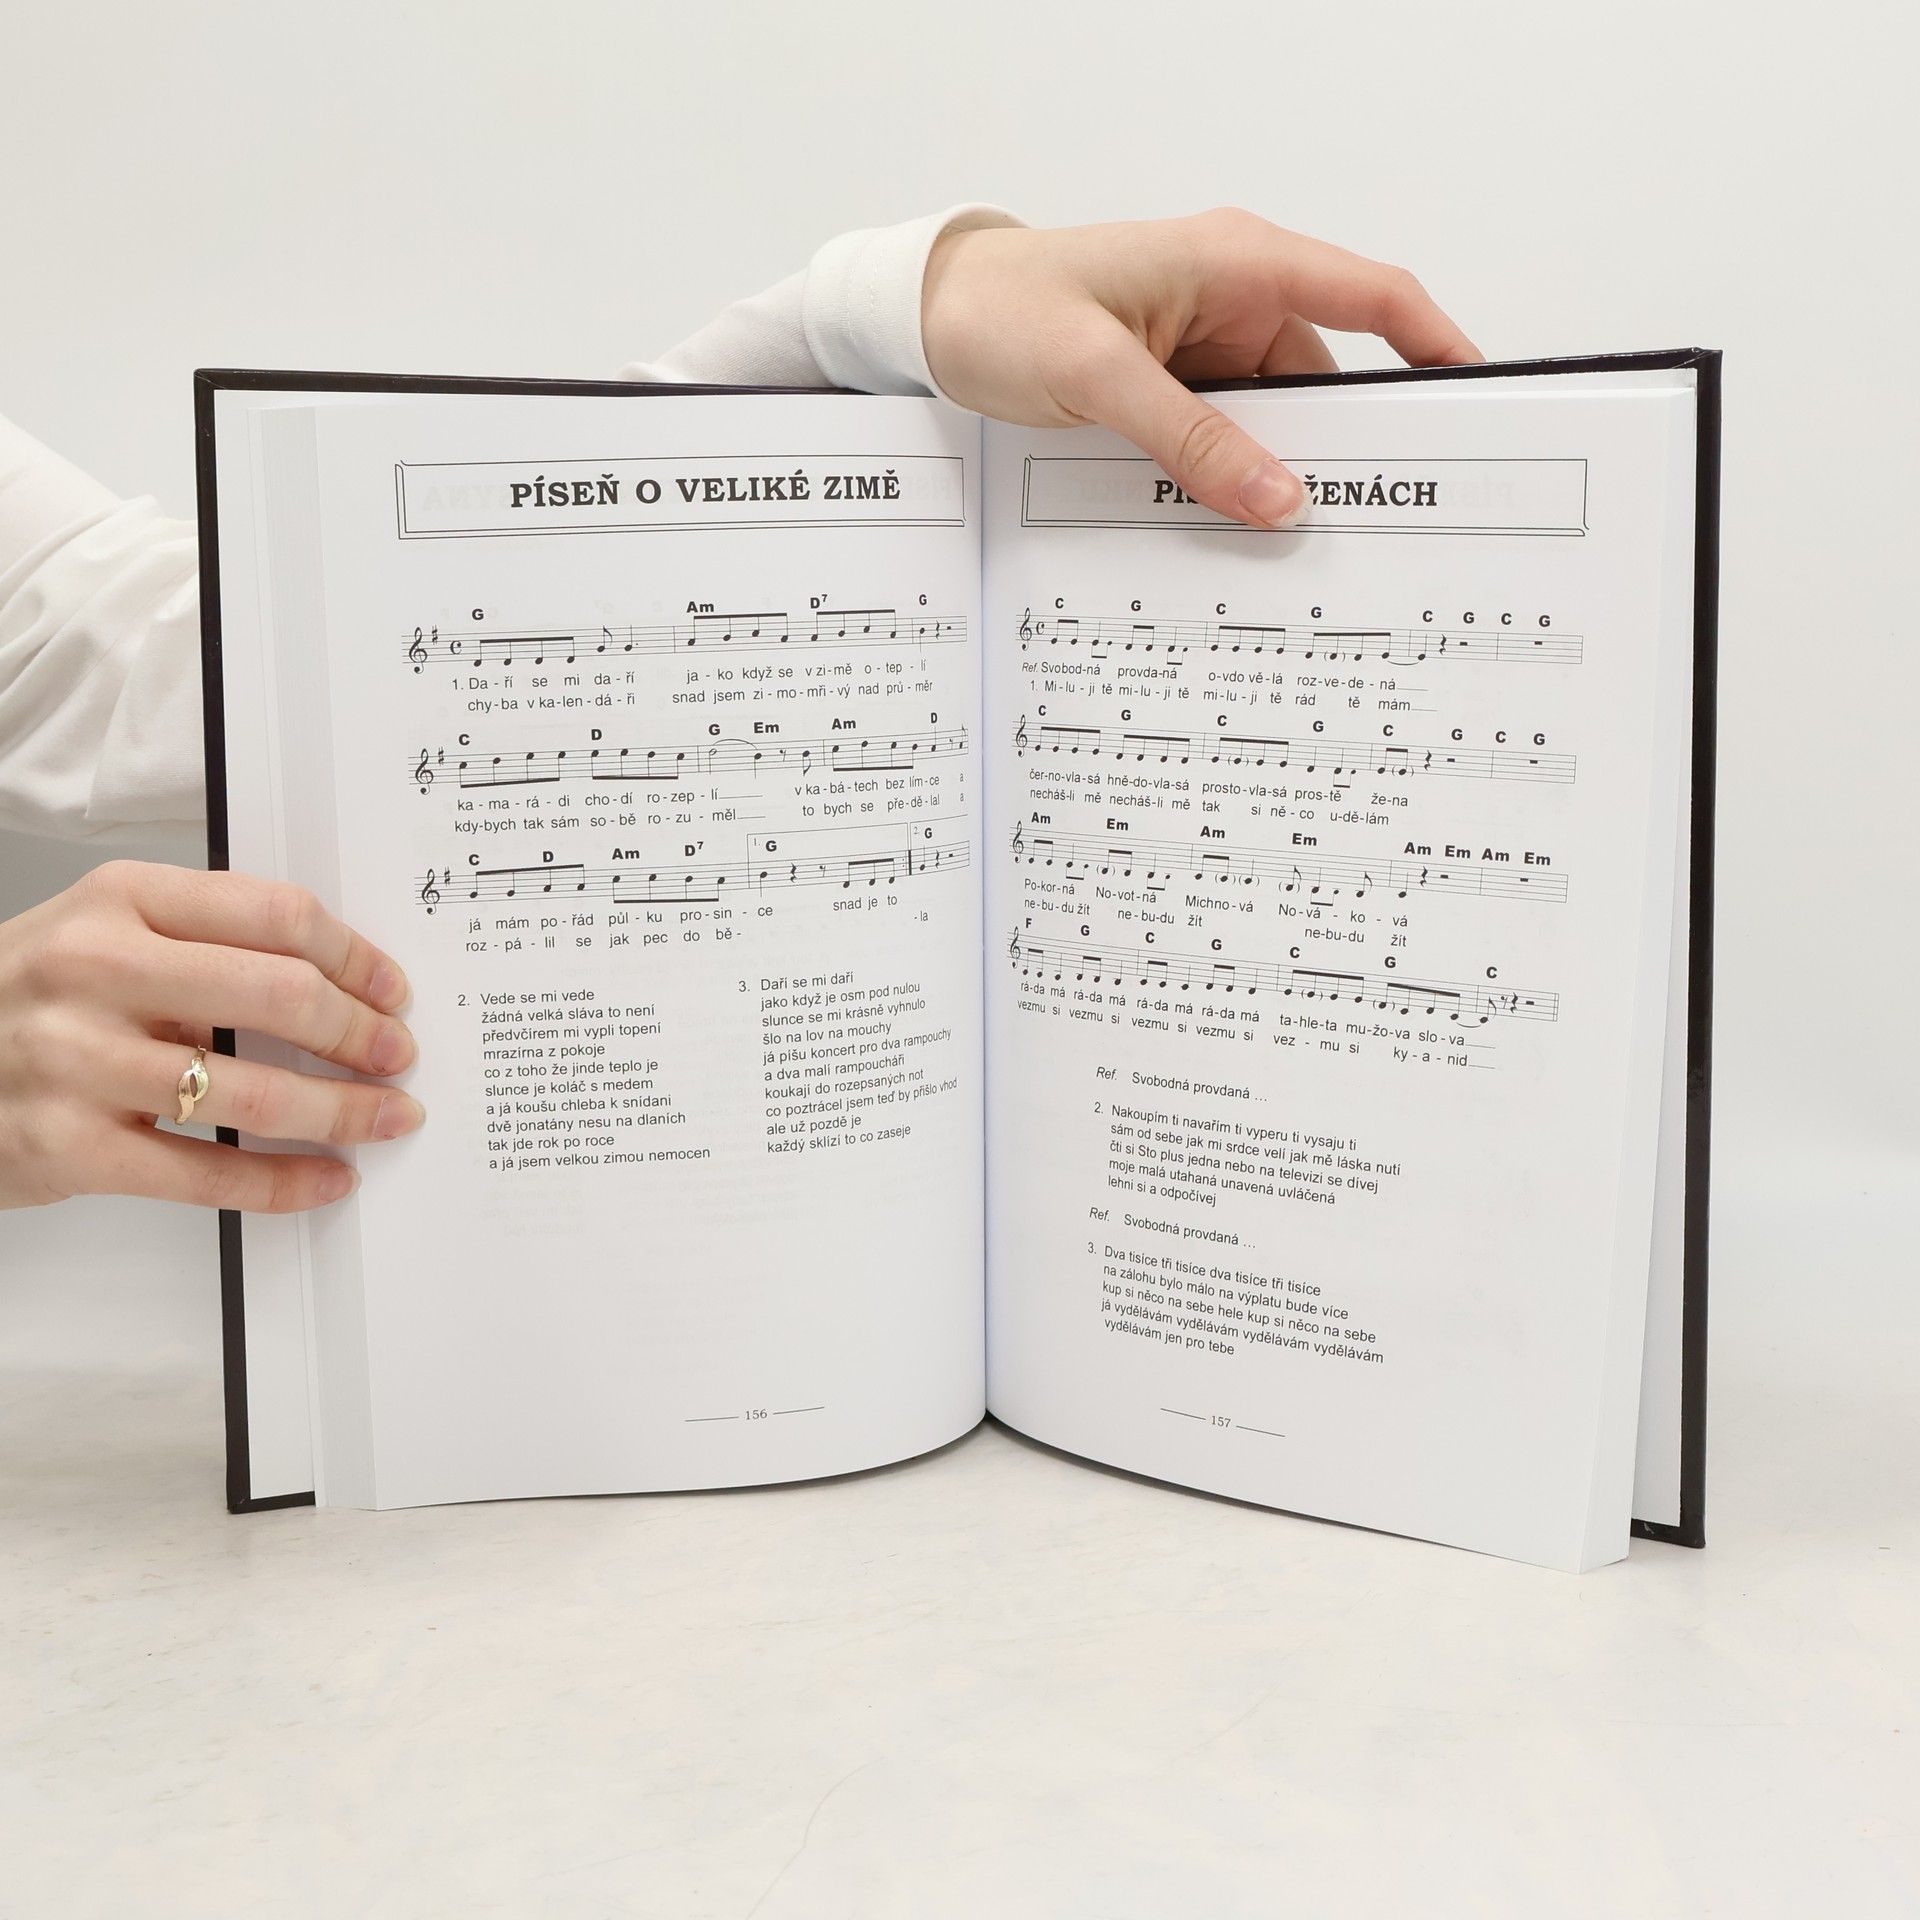 PÍSEŇ O VELIKÉ ZIMĚ
G Am D7 G
1. Da - ří se mi da - ří ja - ko když se v zi - mě o - tep - lí
chy - ba v ka - len - dá - ři snad jsem zi - mo - mři - vý nad prů - měr
C D G Em Am D
ka - ma - rá - di cho - dí ro - zep - lí v ka - bá - tech bez lím - ce a
kdy - bych tak sám so - bě ro - zu - měl to bych se pře - dě - lal a
C D Am D7 1. G 2. G
já mám po - řád půl - ku pro - sin - ce snad je to
roz - pá - lil se jak pec do bě - - la
2. Vede se mi vede
žádná velká sláva to není
předvčírem mi vypli topení
mrazírna z pokoje
co z toho že jinde teplo je
slunce je koláč s medem
a já koušu chleba k snídani
dvě jonatány nesu na dlaních
tak jde rok po roce
a já jsem velkou zimou nemocen
3. Daří se mi daří
jako když je osm pod nulou
slunce se mi krásně vyhnulo
šlo na lov na mouchy
já píšu koncert pro dva rampouchy
a dva malí rampoucháři
koukají do rozepsaných not
co poztrácel jsem teď by přišlo vhod
ale už pozdě je
každý sklízí to co zaseje
156
ŽENÁCH
C G C G C G C G
Ref. Svobod-ná provda-ná o-vdo vě-lá roz-ve-de - ná
1. Mi-lu - ji tě mi-lu - ji tě mi-lu - ji tě rád tě mám
C G C G C G C G
čer-no-vla-sá hně-do-vla-sá prosto-vla-sá pros-tě že-na
necháš-li mě necháš-li mě tak si ně - co u-dě-lám
Am Em Am Em Am Em Am Em
Po-kor-ná No-vot-ná Michno-vá No-vá - ko - vá
ne-bu-du žít ne-bu-du žít ne-bu-du žít
F G C G C G C
rá-da má rá-da má rá-da má rá-da má ta-hle-ta mu-žo-va slo - va
vezmu si vezmu si vezmu si vezmu si vez - mu si ky - a - nid
Ref. Svobodná provdaná ...
2. Nakoupím ti navařím ti vyperu ti vysaju ti
sám od sebe jak mi srdce velí jak mě láska nutí
čti si Sto plus jedna nebo na televizi se dívej
moje malá utahaná unavená uvláčená
lehni si a odpočívej
Ref. Svobodná provdaná ...
3. Dva tisíce tři tisíce dva tisíce tři tisíce
na zálohu bylo málo na výplatu bude více
kup si něco na sebe hele kup si něco na sebe
já vydělávám vydělávám vydělávám vydělávám
vydělávám jen pro tebe
157